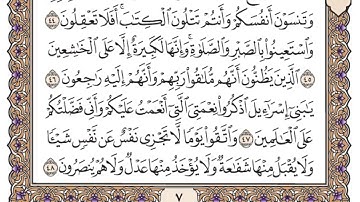 وَتَنسَوْنَ أَنفُسَكُمْ وَأَنتُمْ تَتْلُونَ ٱلْكِتَٰبَ ۚ أَفَلَا تَعْقِلُونَ ٤٤
وَٱسْتَعِينُوا۟ بِٱلصَّبْرِ وَٱلصَّلَوٰةِ ۚ وَإِنَّهَا لَكَبِيرَةٌ إِلَّا عَلَى ٱلْخَٰشِعِينَ
٤٥ ٱلَّذِينَ يَظُنُّونَ أَنَّهُم مُّلَٰقُوا۟ رَبِّهِمْ وَأَنَّهُمْ إِلَيْهِ رَٰجِعُونَ ٤٦
يَٰبَنِىٓ إِسْرَٰٓءِيلَ ٱذْكُرُوا۟ نِعْمَتِىَ ٱلَّتِىٓ أَنْعَمْتُ عَلَيْكُمْ وَأَنِّى فَضَّلْتُكُمْ
عَلَى ٱلْعَٰلَمِينَ ٤٧ وَٱتَّقُوا۟ يَوْمًا لَّا تَجْزِى نَفْسٌ عَن نَّفْسٍ شَيْـًٔا
وَلَا يُقْبَلُ مِنْهَا شَفَٰعَةٌ وَلَا يُؤْخَذُ مِنْهَا عَدْلٌ وَلَا هُمْ يُنصَرُونَ ٤٨
٧